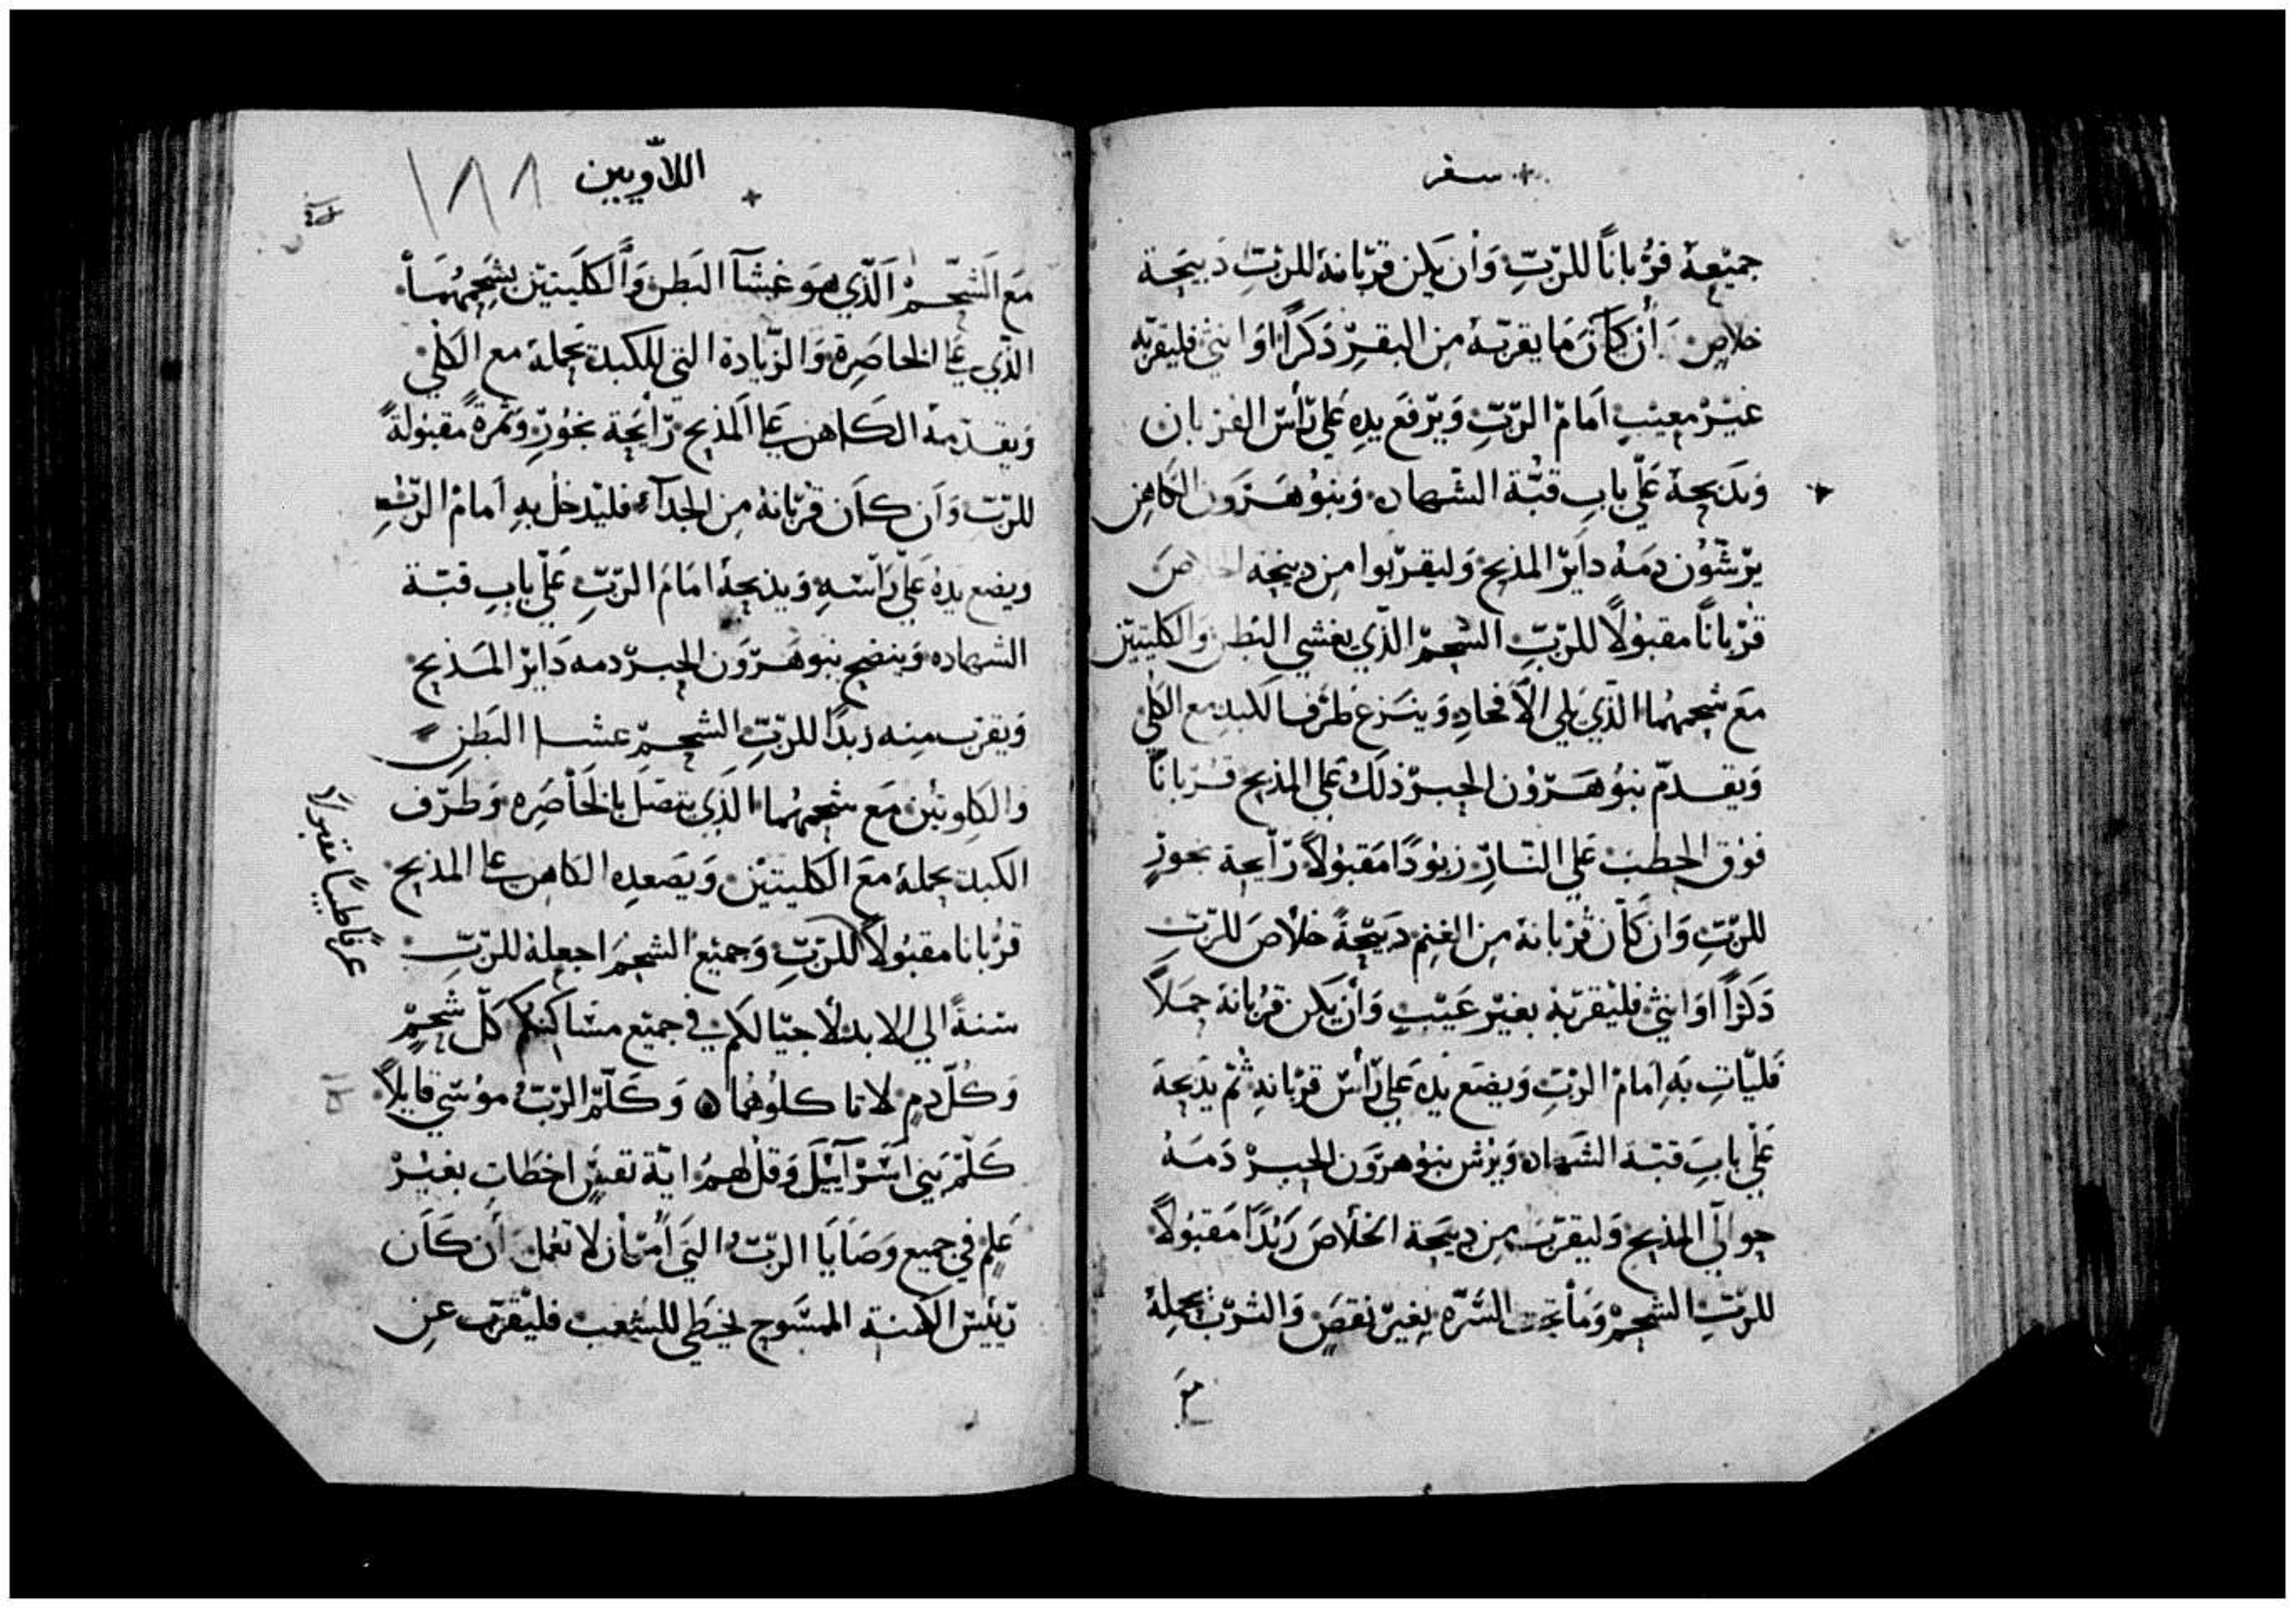 سفر
جميعة قرباناً للربّ وان يكن قربانه للربّ دبيحة
خلاص أن كان ما يقربه من البقر دكراً او انثي فليقربه
غير معيب امام الربّ ويرفع يده علي رأس القربان
ويدبحة علي باب قبّة الشهاده وبنو هرون الكاهن
يرشون دمه داير المذبح وليقربوا من دبيحة الخلاص
قرباناً مقبولاً للربّ الشحم الذي يغشي البطن والكليتين
مع شحمهما الذي يلي الأفخاد وينزع طرف الكبد مع الكلي
ويقدم بنو هرون الحبر ذلك علي المذبح قرباناً
فوق الحطب علي النار زبودًا مقبولاً رايحة بخور
للربّ وان كان قربانه من الغنم دبيحة خلاص للربّ
دكراً او انثي فليقربه بغير عيب وأن يكن قربانه حملاً
فليات به امام الربّ ويضع يده علي رأس قربانه ثم يدبحة
علي باب قبة الشهاده ويرش بنو هرون الحبر دمه
حوالي المذبح وليقرب من دبيحة الخلاص زبدًا مقبولاً
للربّ الشحم وما تحت السرّه بغير نقص والثرب بجمله
مع
اللاويين
١٨٨
مع الشحم الذي هو غشآ البطن والكليتين بشحمهما
الذي علي الخاصرة والزيادة التي للكبد بجملة مع الكلي
ويقدمه الكاهن علي المذبح رايحة بخور وثمرة مقبولة
للربّ وان كان قربانه من الجدآ فليدخل به امام الربّ
ويضع يده علي راسه ويذبحة امام الربّ علي باب قبة
الشهاده وينضح بنو هرون الحبر دمه داير المذبح
ويقرب منه زبدًا للربّ الشحم عشا البطن
والكلوتين مع شحمهما الذي يتصل بالخاصره وطرف
الكبد بجملة مع الكليتين ويصعده الكاهن علي المذبح
قربانا مقبولاً للربّ وجميع الشحم اجعله للربّ
سنةً الي الابد لأجيالكم في جميع مساكنكم كل شحم
وكل دم لا تاكلوهما وكلّم الربّ موسي قايلاً
كلّم بني اسرآييل وقل لهم اية نفس اخطات بغير
علم في جميع وصايا الربّ التي أمر أن لا تعمل أن كان
رييس الكهنة الممسوح يخطي للشعب فليقرب عن
عرفاً طيباً مقبولاً